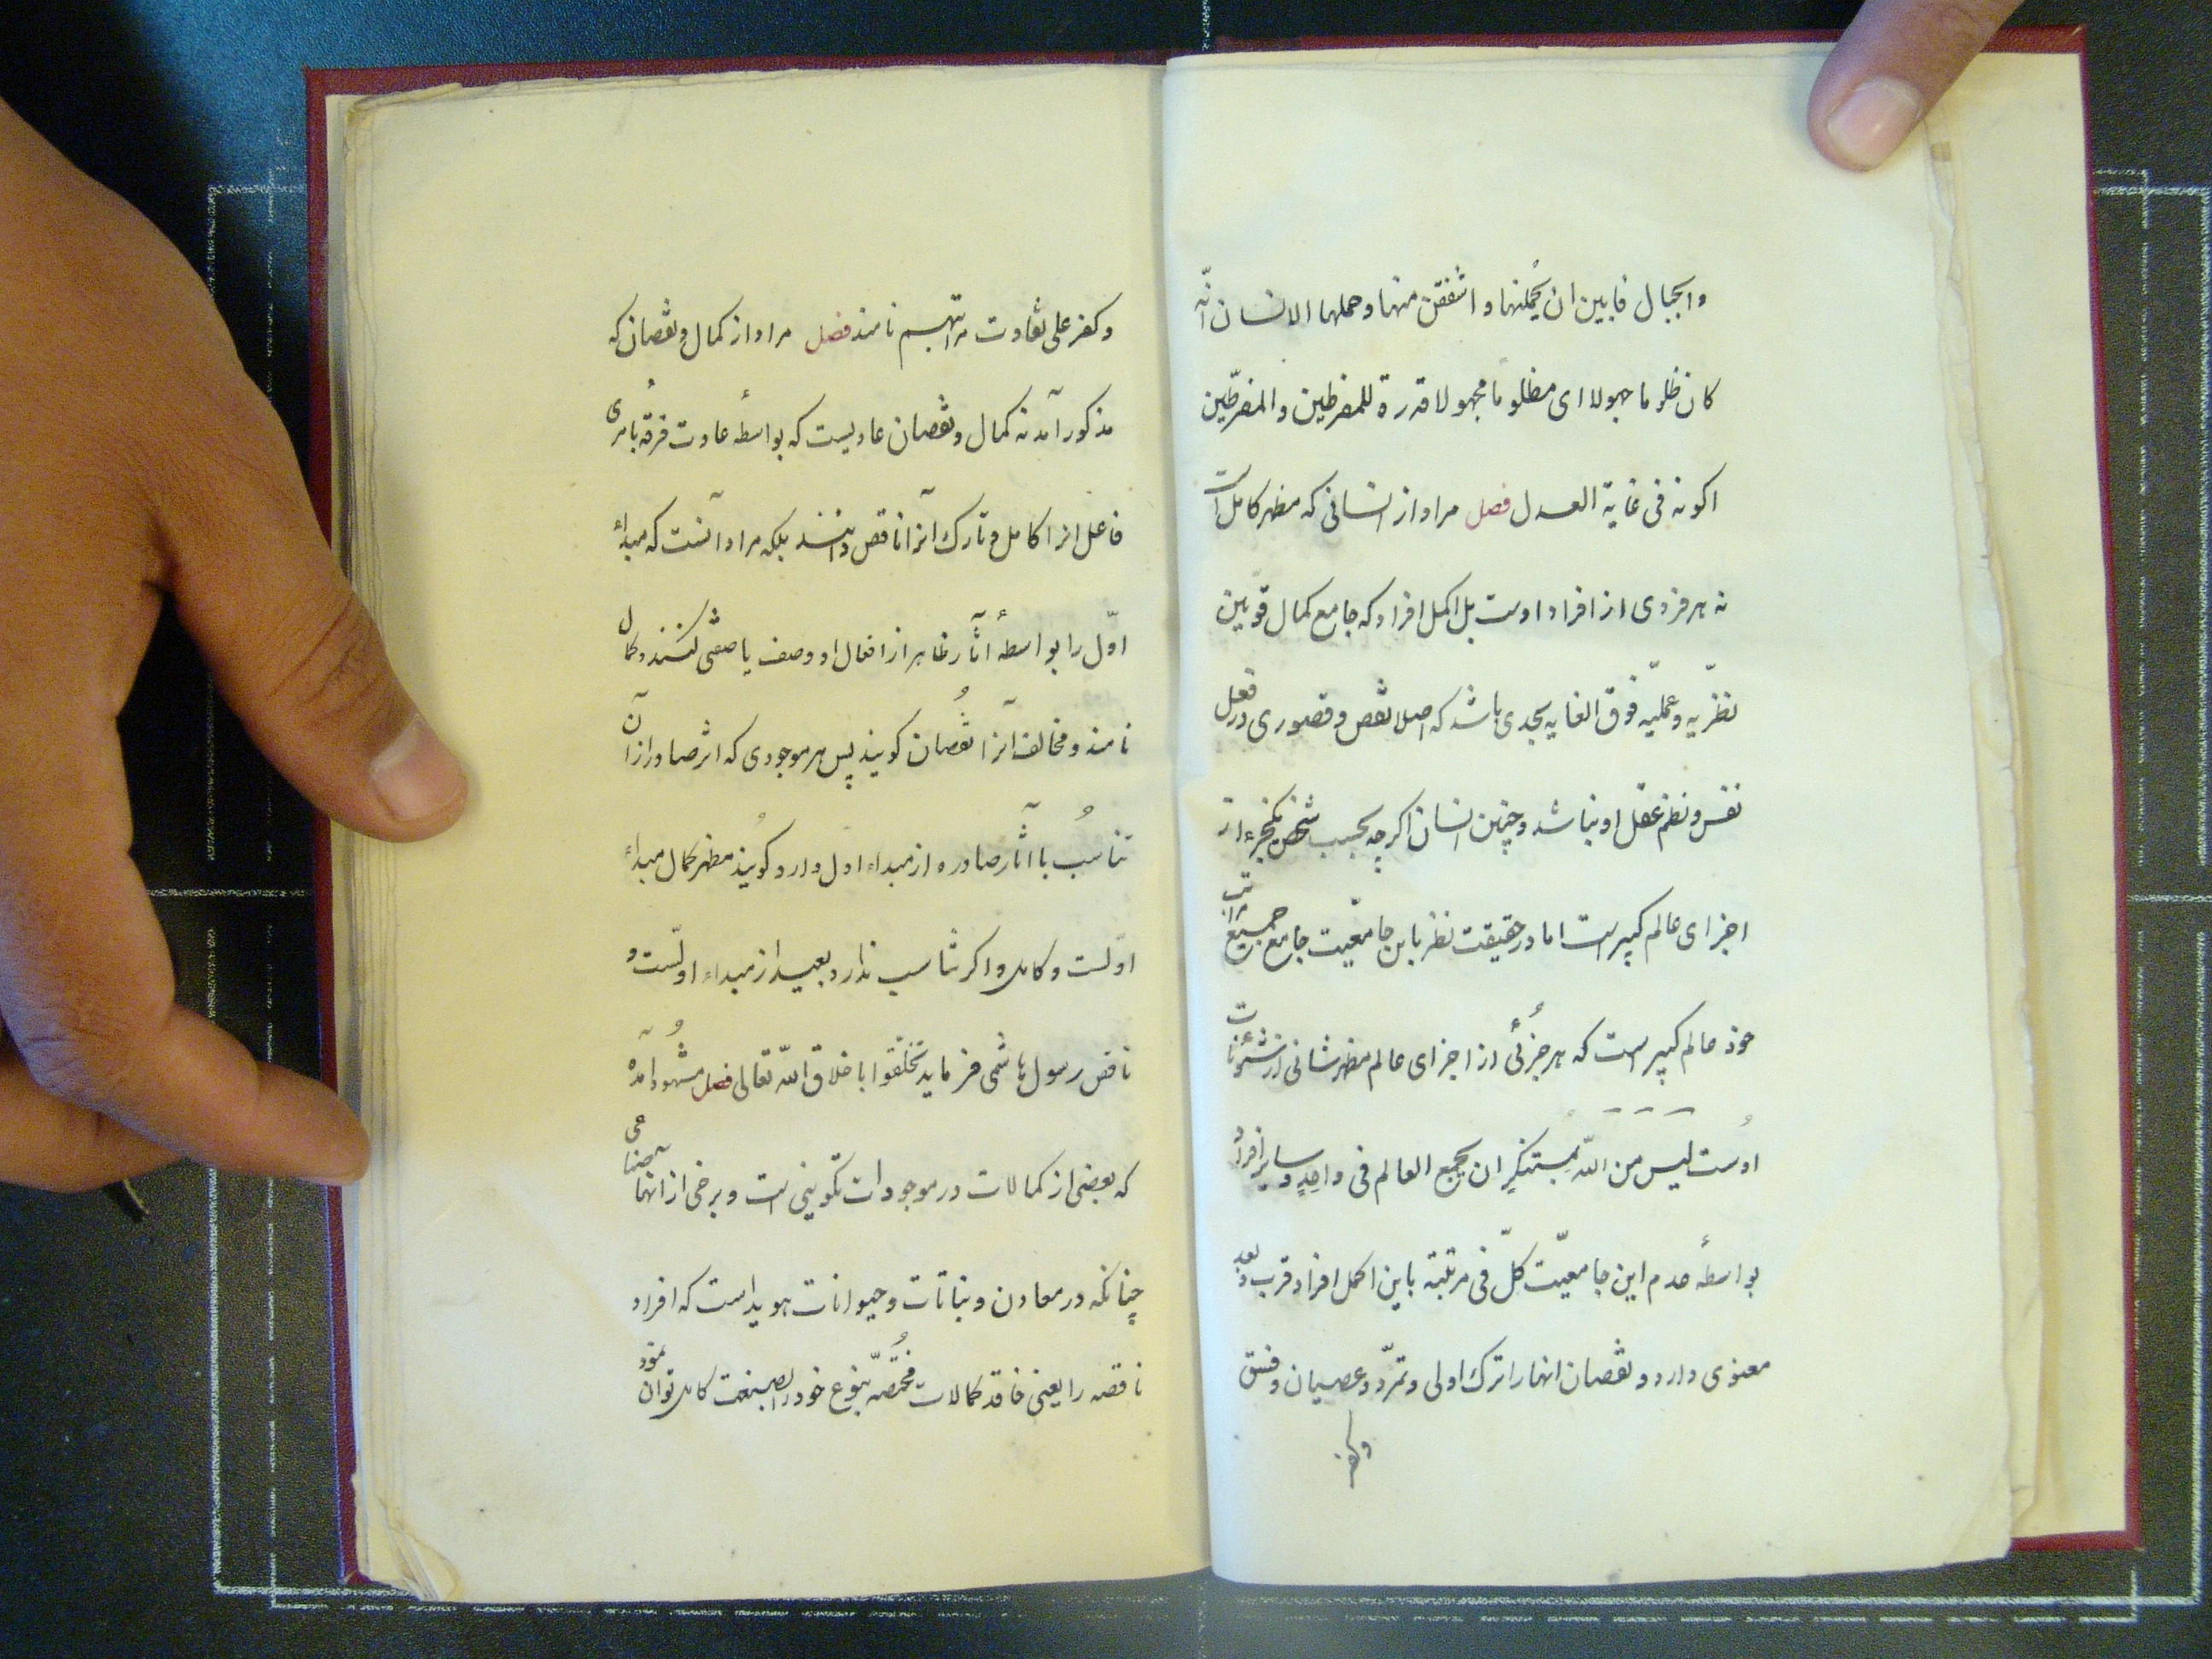 والجبال فابین ان یحملنها و اشفقن منها و حملها الانسان انّه
کان ظلوما جهولا ای مظلوما مجهولا قدره للمفرطین و المفرّطین
لکونه فی غایة العدل فصل مراد از انسانی که مظهر کامل است
نه هر فردی از افراد اوست بل اکمل افراد که جامع کمال قوتین
نظریّه و عملیّه فوق الغایه بحدی باشد که اصلا نقص و قصوری در فعل
نفس و نظم عقل او نباشد و چنین انسان اکرچه بحسب شخص یکجزء از
اجزای عالم کبیر است اما در حقیقت نظر باین جامعیّت جامع جمیع مراتب
خود عالم کبیر است که هر جزئی از اجزای عالم مظهر شانی از شئونات
اوست لیس من اللّه بمستنکر ان یجمع العالم فی واحدٍ و سایر افراد
بواسطهٔ عدم این جامعیّت کلّ فی مرتبته باین اکمل افراد قرب و بعد
معنوی دارد و نقصان انها را ترک اولی و تمرّد و عصیان و فسق
وکفر
و کفر علی تفاوت مراتبهم نامند فصل مراد از کمال و نقصان که
مذکور آمد نه کمال و نقصان عادیست که بواسطهٔ عادت فرقه بامری
فاعل انرا کامل و تارک آنرا ناقص دانند بلکه مراد آنست که مبداء
اوّل را بواسطهٔ اثار ظاهر از افعال او وصف یا صفتی کنند و کمال
نامند و مخالف آنرا نقصان کویند پس هر موجودی که اثر صادر از آن
تناسُب با آثار صادره از مبداء اول دارد کویند مظهر کمال مبداء
اوّلست و کامل و اکر تناسب ندارد بعید از مبداء اولّست و
ناقص رسول هاشمی فرماید تخلّقوا باخلاق اللّه تعالی فصل مشهود آمده
که بعضی از کمالات در موجودات تکوینی است و برخی از انها صناعی
چنانکه در معادن و نباتات و حیوانات هویداست که افراد
ناقصه را یعنی فاقد کمالات مختصّه بنوع خود را بصنعت کامل توان نمود